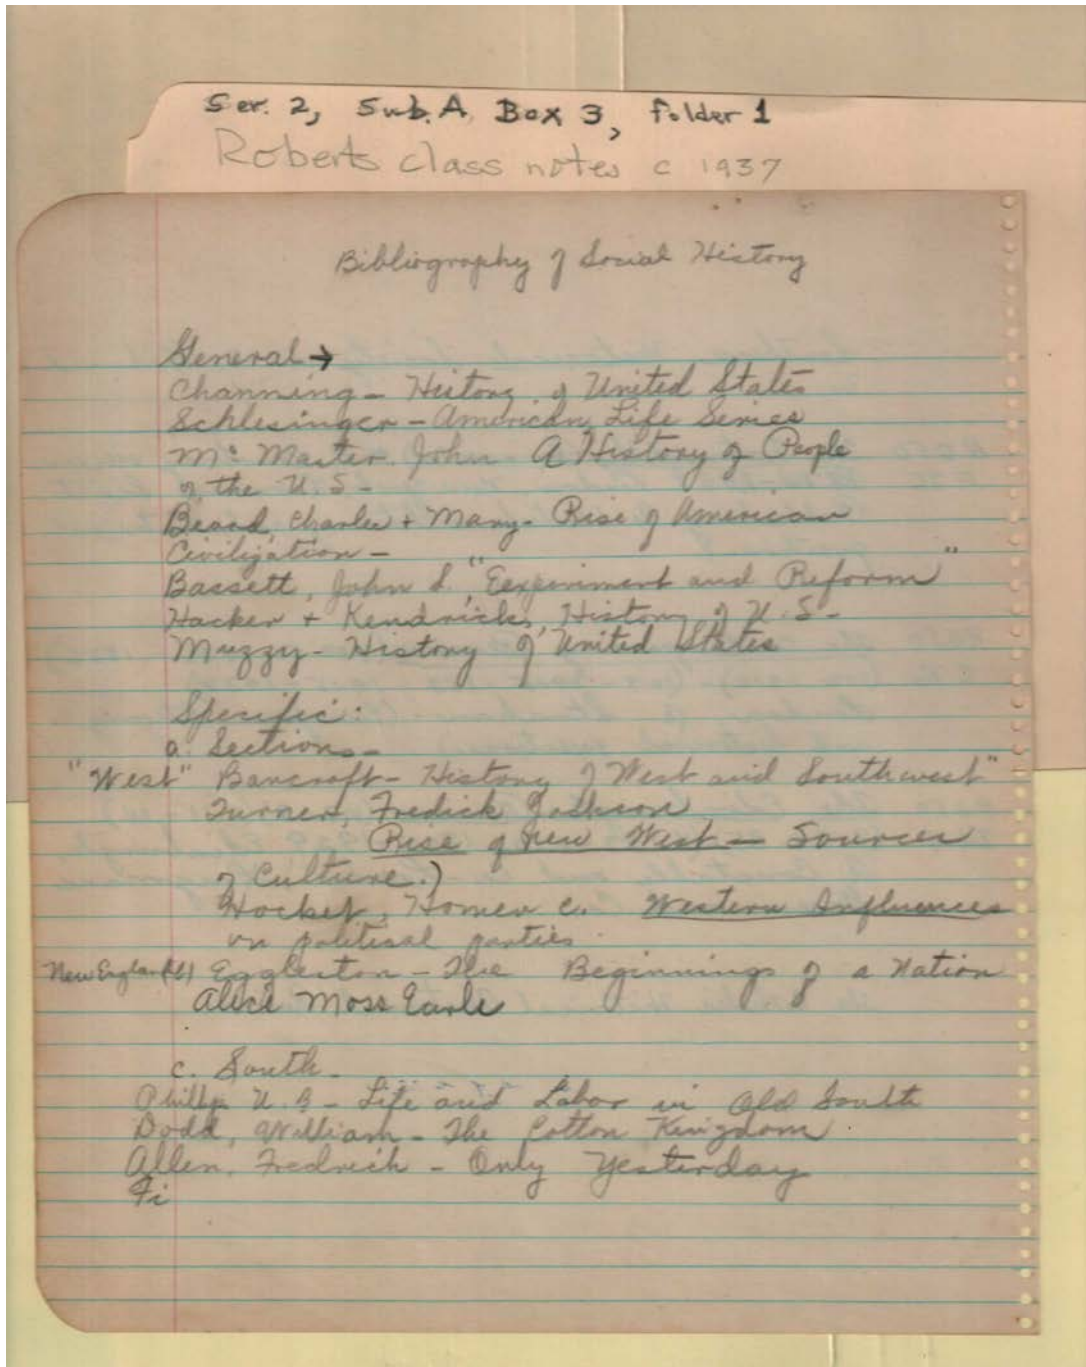 Ser. 2, Sub. A, Box 3, Folder 1
Roberts class notes c 1937
Bibliography of Social History
General →
Channing - History of United States
Schlesinger - American Life Series
Mc Master John A History of People
of the U.S. -
Beard, Charles + Mary - Rise of American
Civilization -
Bassett, John S. "Eexperiment and Reform"
Hacker + Kendricks, History of U.S. -
Muzzy - History of United States
Specific:
a. Sections -
"West" Bancroft - History of West and Southwest"
Turner, Fredick Jackson
Rise of New West - Sources
of Culture.)
Hocket, Homer C. Western Influences
on political parties.
New England (b) Eggleston - The Beginnings of a Nation
Alice Moss Earle
c. South -
Phillp U. B - Life and Labor in Old South
Dodd, William - The Cotton Kingdom
Allen, Fredrich - Only Yesterday
Fi